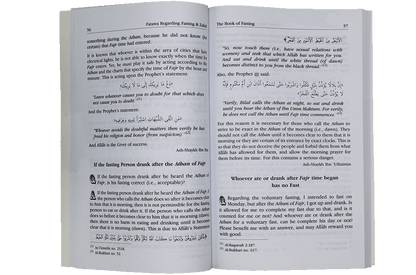 56
Fatawa Regarding Fasting & Zakah
something during the Athan, because he did not know (for
certain) that Fajr time had entered.
It is known that whoever is within the area of cities that have
electrical lights, he is not able to know exactly when the time for
Fajr enters. Yet, he must play it safe by acting according to the
Athan and the charts that specify the time of Fajr by the hour and
minute. This is acting upon the Prophet's statement:
دَعْ مَا يَرِيبُكَ إِلَى مَا لَا يَرِيبُكَ
"Leave whatever causes you doubt for that which does
not cause you to doubt."
And the Prophet's statement:
"Whoever avoids the doubtful matters then verily he has
freed his religion and honor (from suspicion)."
And Allāh is the Giver of success.
Ash-Shaykh Ibn
If the fasting Person drank after the Athan of Fajr
If the fasting person drank after he heard the Athan of Fajr,
is his fasting correct (i.e., acceptable)?
If the fasting person drank after he heard the Athan of Fajr, if
the person who calls the Athan does so after it becomes clear
to him that it is morning, then it is not permissible for the fasting
person to eat or drink after it. If the person who calls the Athan
does so before it becomes clear to him that it is morning (dawn),
then there is no harm in eating and drinking until it becomes
clear that it is morning (dawn). This is due to Allāh's Statement:
The Book of Fasting
57
"So, now touch them (i.e., have sexual relations with
women) and seek that which Allāh has written for you.
And eat and drink until the white thread (of dawn)
becomes distinct to you from the black thread."
Also, the Prophet ﷺ said:
"Verily, Bilal calls the Athan at night, so eat and drink
until you hear the Athan of Ibn Umm Maktum. For verily,
he does not call the Athan until Fajr time commences."
For this reason it is necessary for those who call the Athan to
strive to be exact in the Athan of the morning (i.e., dawn). They
should not call the Athan until it becomes clear to them that it is
morning or they are certain of its entrance by exact clocks. This is
so that they do not deceive the people and forbid them from what
Allāh has allowed for them, and allow the morning prayer for
them before its time. For this contains a serious danger.
Ash-Shaykh Ibn 'Uthaimin
Whoever ate or drank after the time of Fajr began
has no Fast
Regarding the voluntary fasting, I intended to fast on
Monday, but after the Athan of Fajr, I got up and drank. Is
it allowed for me to complete my fast due to that, and is it
counted for me or not? And whoever ate or drank after the
Athan for a voluntary fast, can he complete his day or no?
Please benefit me with an answer, and may Allāh reward you
with good.
Al-Baqarah 2:187.